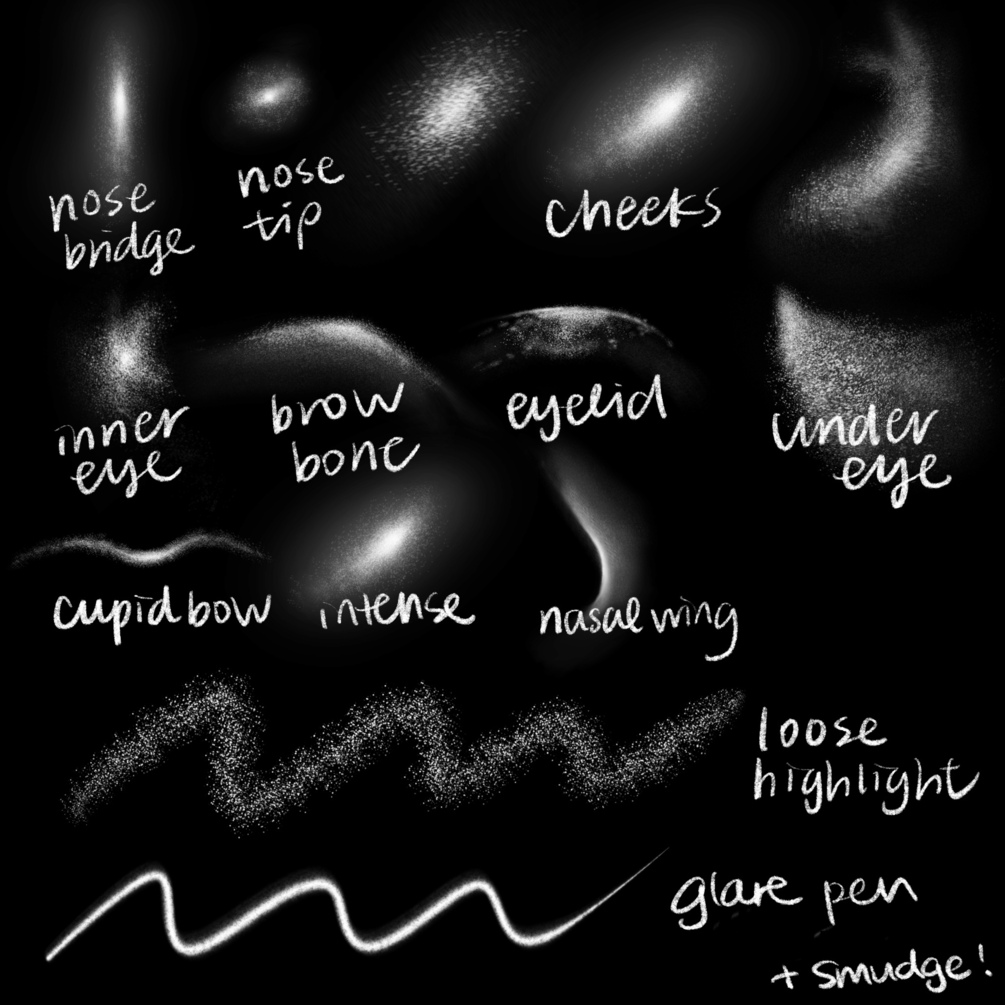 nose
bridge
nose
tip
cheeks
inner
eye
brow
bone
eyelid
under
eye
cupid bow
intense
nasal wing
loose
highlight
glare pen
+ smudge!